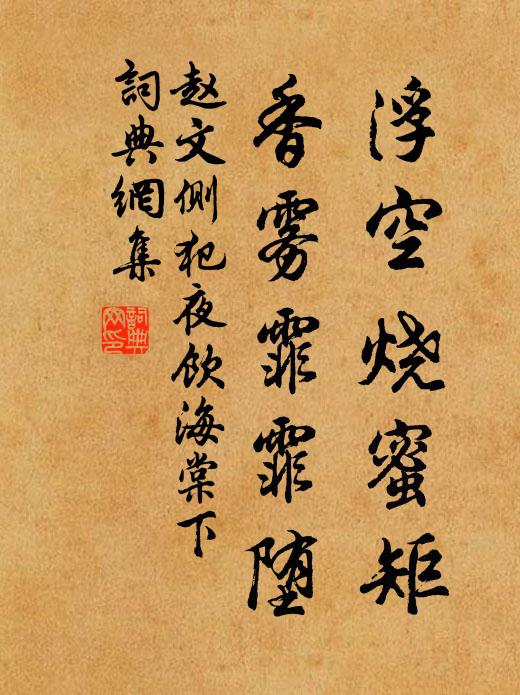 浮空烧蜜矩
香雾霏霏堕
赵文侧犯夜饮海棠下
詞典網集
詞典网印